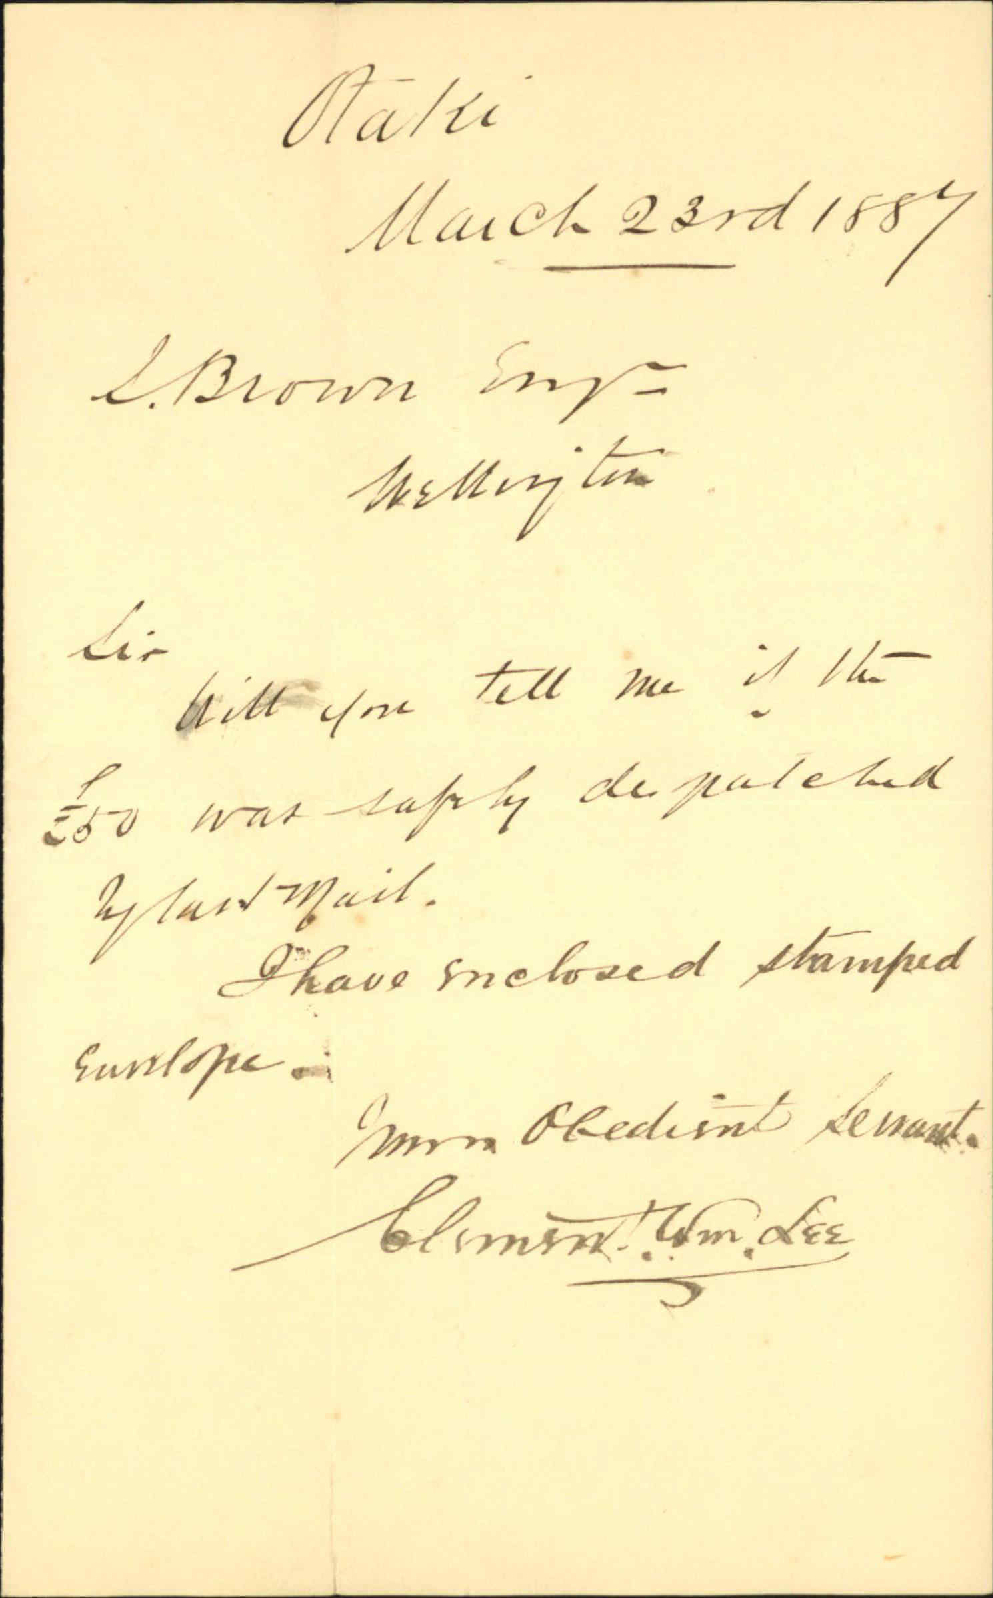 Otaki
March 23rd 1887
S. Brown Esqre
Wellington
Sir
Will you tell me if the
£50 was safely despatched
by last Mail.
I have enclosed stamped
envelope.
Your Obedient Servant.
Clement. Wm. Lee